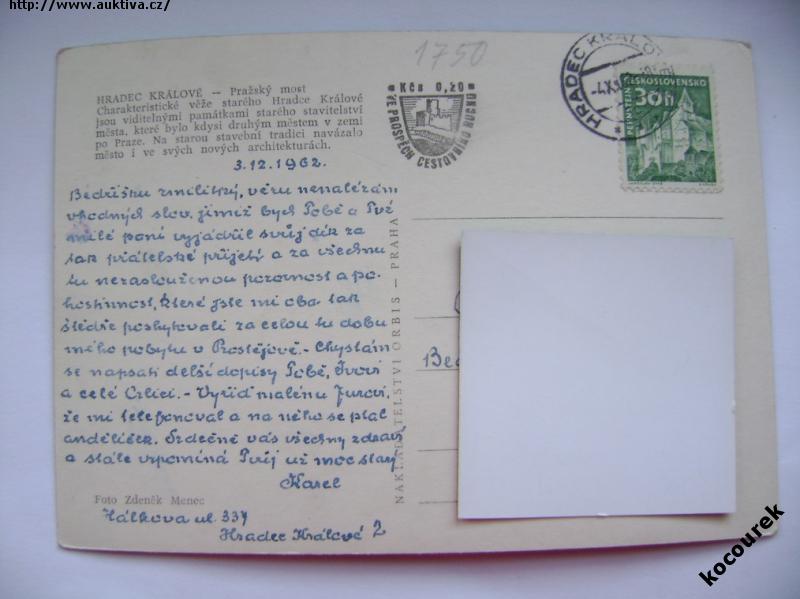 http://www.auktiva.cz/
1750
HRADEC KRÁLOVÉ — Pražský most
Charakteristické věže starého Hradce Králové
jsou viditelnými památkami starého stavitelství
města, které bylo kdysi druhým městem v zemi
po Praze. Na starou stavební tradici navázalo
město i ve svých nových architekturách.
Kčs 0,20
VE PROSPĚCH CESTOVNÍHO RUCHU
HRADEC KRÁLOV
ČESKOSLOVENSKO
30h
PERNŠTEJN
3.12.1962.
Bedříšku zmilitký, věru nenalézám
vhodných slov, jimiž bych Tobě a Tvé
milé paní vyjádřil svůj dík za
tak přátelské přijetí a za všechnu
tu nezaslouženou pozornost a po-
hostinnost, které jste mi oba tak
štědře poskytovali za celou tu dobu
mého pobytu v Prostějově. - Chystám
se napsati delší dopisy Tobě,
a celé - Vyřiď malému Jurovi,
že mi telefonoval a na něho se ptal
andělíček. Srdečně vás všechny zdraví
a stále vzpomíná Tvůj už moc starý
Karel
Foto Zdeněk Menec
Hálkova ul. 337
Hradec Králové 2
NAKLADATELSTVÍ ORBIS — PRAHA
Be
kocourek